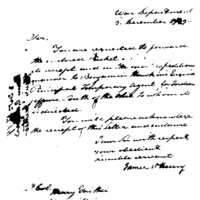 War Department
3. December 1799
Sir,
You are requested to forward
the enclosed Packet
its receipt and in the most expeditious
manner to Benjamin Hawkins Esquire
Principal Temporary Agent for Indian
affairs South of the Ohio to whom it
is directed.
You will please acknowledge
the receipt of this Letter and enclosure
I am Sir with respect,
your obedient
humble servant
James McHenry
Col. Henry Gaither